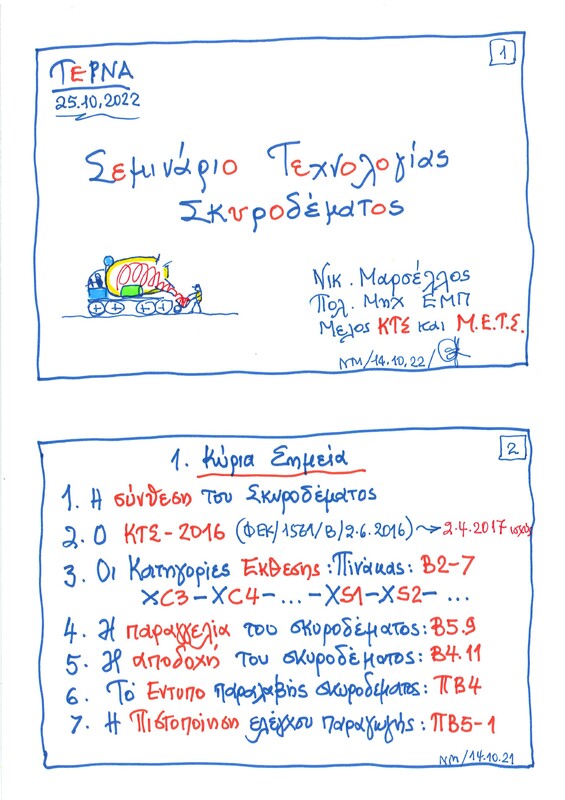 1
ΤΕΡΝΑ
25.10.2022
Σεμινάριο Τεχνολογίας
Σκυροδέματος
Νικ. Μαρσέλλος
Πολ. Μηχ ΕΜΠ
Μελος ΚΤΣ και Μ.Ε.Τ.Σ.
ΝΜ/14.10.22/
2
1. Κύρια Σημεία
1. Η σύνθεση του Σκυροδέματος
2. Ο ΚΤΣ-2016 (ΦΕΚ/1561/Β/2.6.2016) → 2.4.2017 ισχύς
3. Οι Κατηγορίες Εκθεσης: Πίνακας: Β2-7
XC3 - XC4 - ... - XS1 - XS2 - ...
4. Η παραγγελία του σκυροδέματος: Β5.9
5. Η αποδοχή του σκυροδέματος: Β4.11
6. Το Εντυπο παραλαβής σκυροδέματος: ΠΒ4
7. Η Πιστοποίηση ελέγχου παραγωγής: ΠΒ5-1
ΝΜ/14.10.21